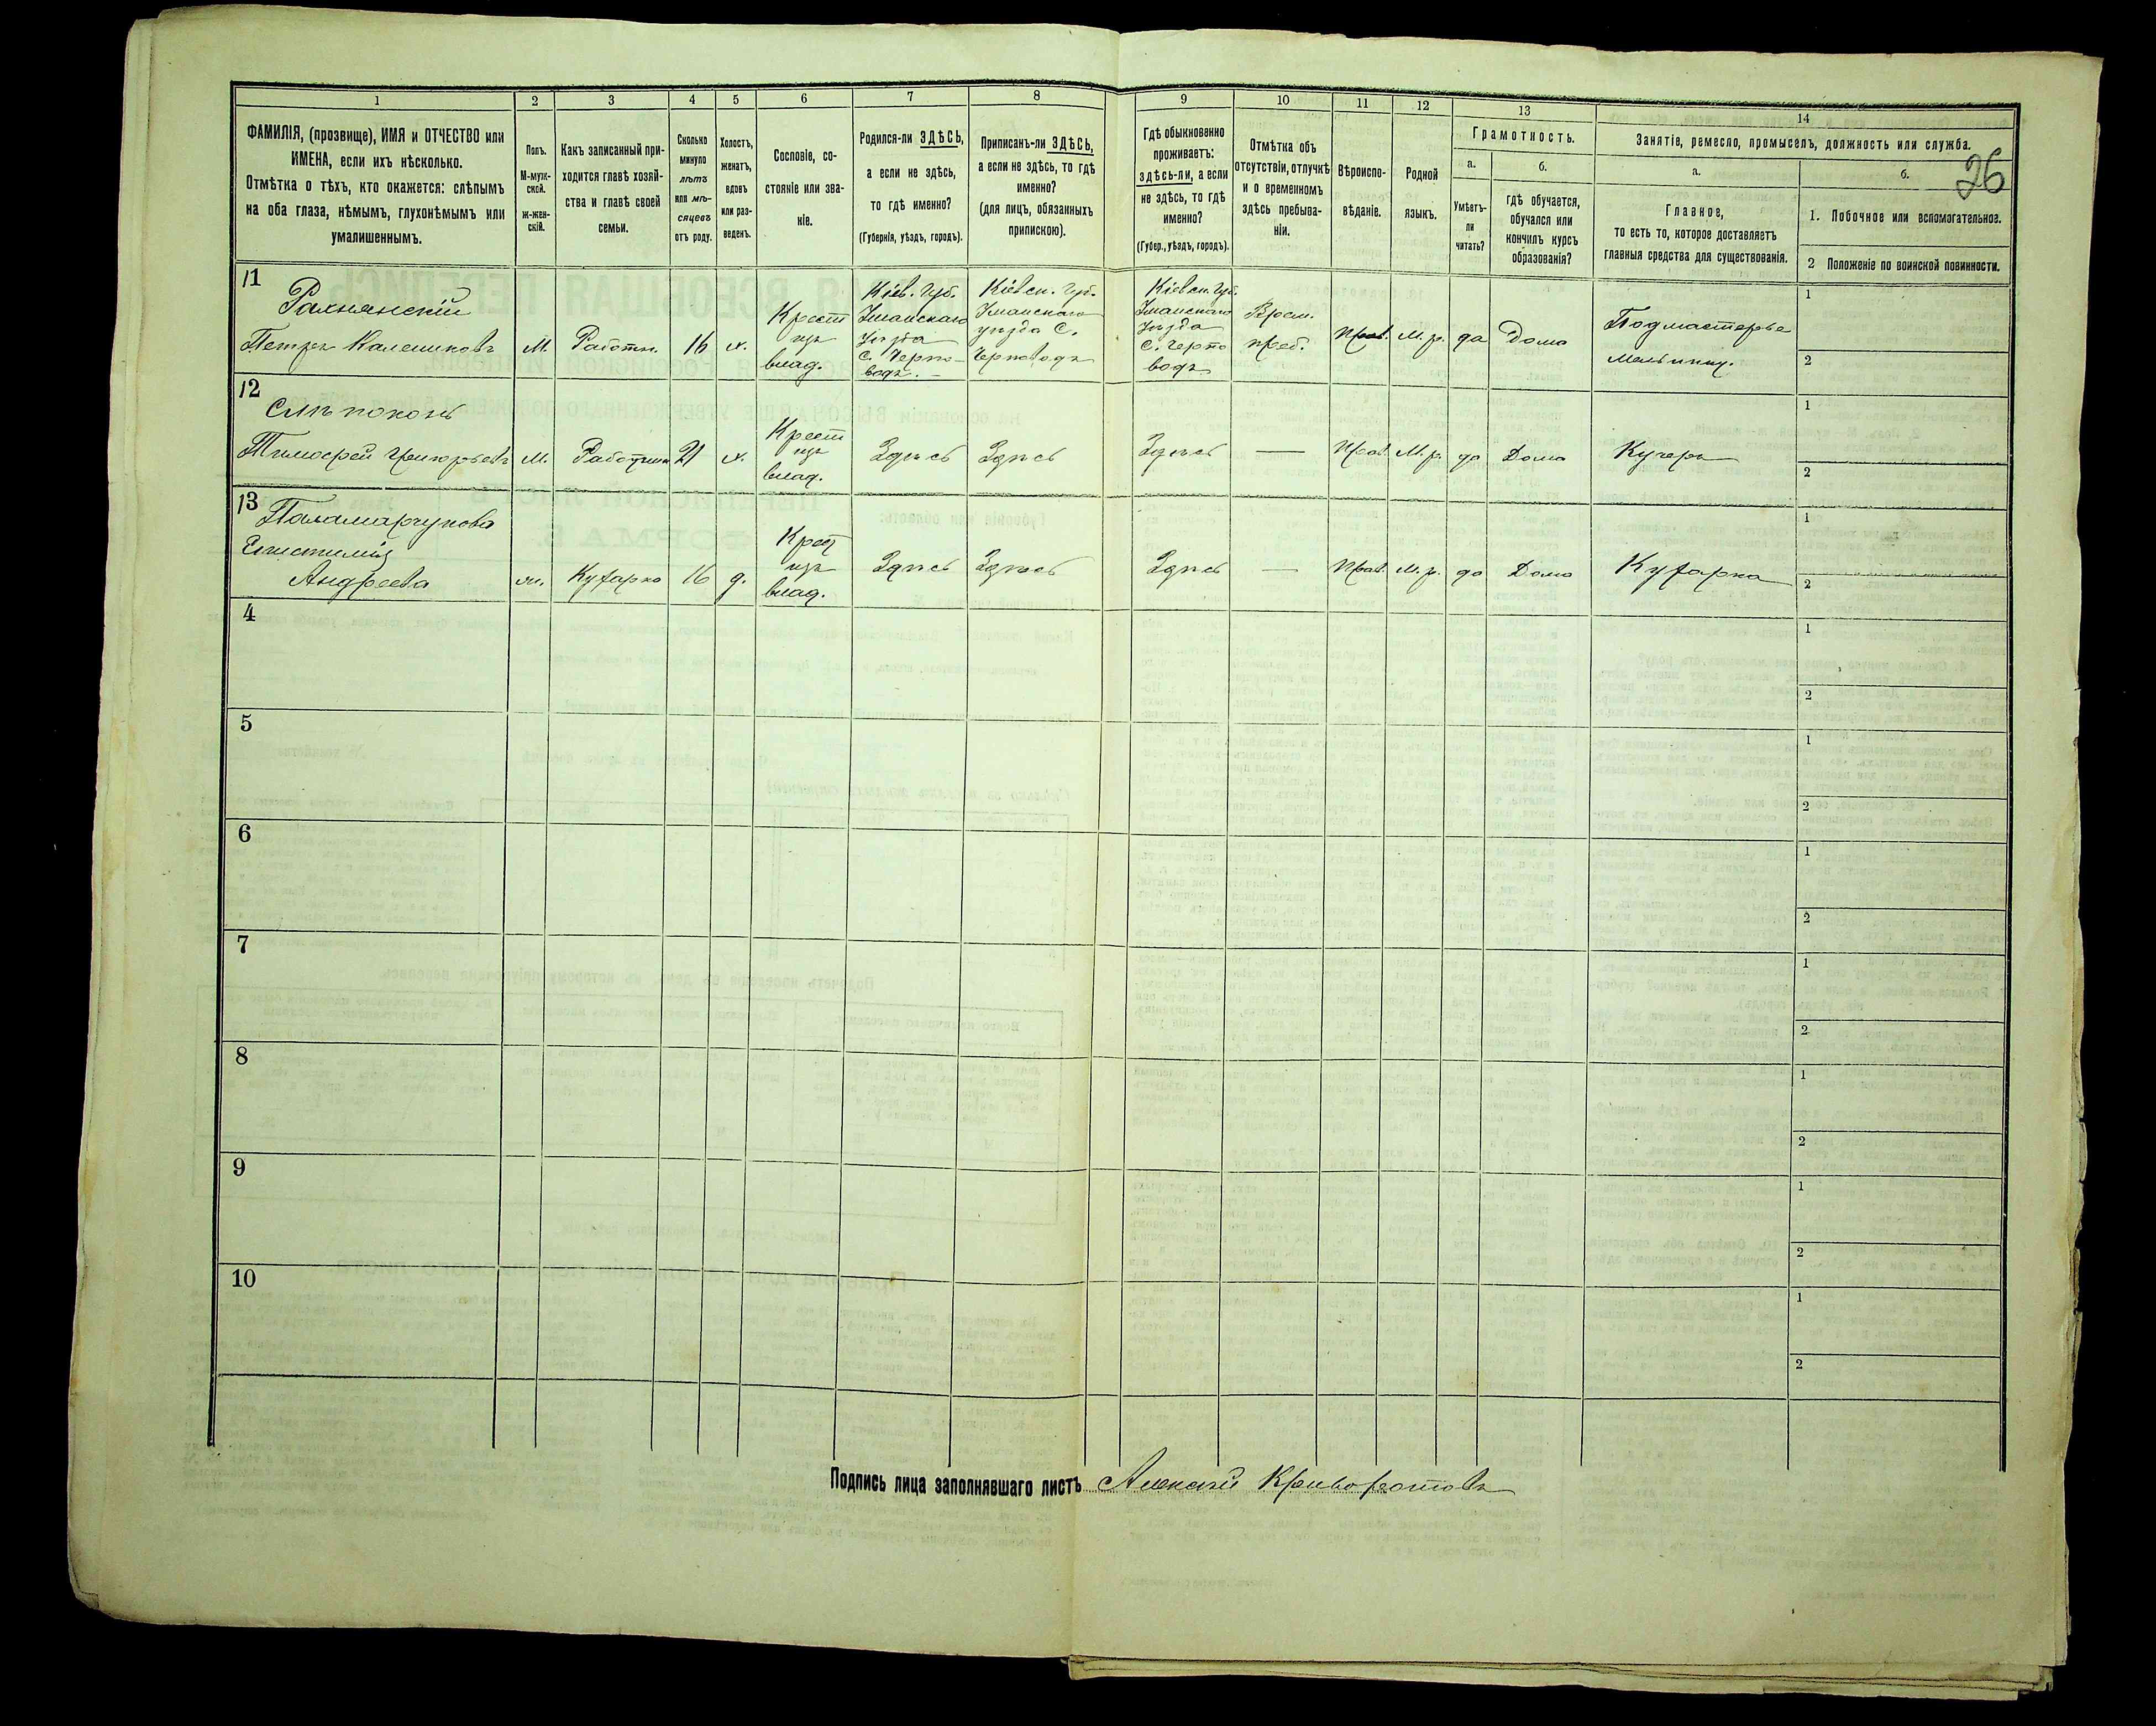 1 2 3 4 5 6 7 8 9 10 11 12 13 14
ФАМИЛІЯ, (прозвище), ИМЯ и ОТЧЕСТВО или
ИМЕНА, если ихъ нѣсколько.
Отмѣтка о тѣхъ, кто окажется: слѣпымъ
на оба глаза, нѣмымъ, глухонѣмымъ или
умалишеннымъ.
Полъ.
М-муж-
ской.
ж-жен-
скій.
Какъ записанный при-
ходится главѣ хозяй-
ства и главѣ своей
семьи.
Сколько
минуло
лѣтъ
или мѣ-
сяцевъ
отъ роду.
Холостъ,
женатъ,
вдовъ
или раз-
веденъ.
Сословіе, со-
стояніе или зва-
ніе.
Родился-ли ЗДѢСЬ,
а если не здѣсь,
то гдѣ именно?
(Губернія, уѣздъ, городъ).
Приписанъ-ли ЗДѢСЬ,
а если не здѣсь, то гдѣ
именно?
(для лицъ, обязанныхъ
припискою).
Гдѣ обыкновенно
проживаетъ:
здѣсь-ли, а если
не здѣсь, то гдѣ
именно?
(Губер., уѣздъ, городъ).
Отмѣтка объ
отсутствіи, отлучкѣ
и о временномъ
здѣсь пребыва-
ніи.
Вѣроиспо-
вѣданіе.
Родной
языкъ.
Грамотность.
а.
Умѣетъ-
ли
читать?
б.
гдѣ обучается,
обучался или
кончилъ курсъ
образованія?
Занятіе, ремесло, промыселъ, должность или служба.
а.
Главное,
то есть то, которое доставляетъ
главныя средства для существованія.
б.
26
1. Побочное или вспомогательное.
2 Положеніе по воинской повинности.
11
Рахнянскій
Петръ
М.
Работн.
16
х.
Крест
изъ
влад.
Кіев. Губ.
Уманскаго
уѣзда
с. Черпо-
водъ.
Кіевск. Губ.
Уманскаго
уѣзда с.
Черповодъ
Кіевск. Губ.
Уманскаго
уѣзда
с. Черпо
водъ
Врем.
преб.
Прав.
М. р.
да
Дома
Подмастерье
1
2
12
Тимофей
М.
Работник
21
х.
Крест
изъ
влад.
Здѣсь
Здѣсь
Здѣсь
—
Прав.
М. р.
да
Дома
Кучеръ
1
2
13
Паламарчукова
Андреева
ж.
Кухарка
16
д.
Крест
изъ
влад.
Здѣсь
Здѣсь
Здѣсь
—
Прав.
М. р.
да
Дома
Кухарка
1
2
4
1
2
5
1
2
6
1
2
7
1
2
8
1
2
9
1
2
10
1
2
Подпись лица заполнявшаго листъ Алексѣй